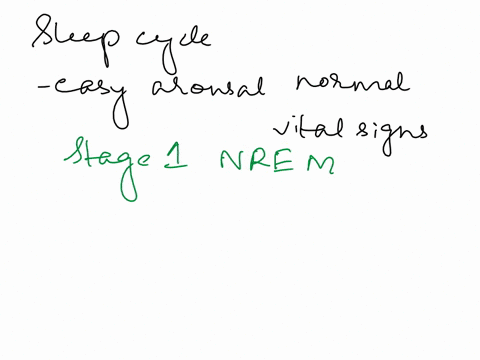 Sleep cycle
-easy arousal normal
vital signs
Stage 1 NREM